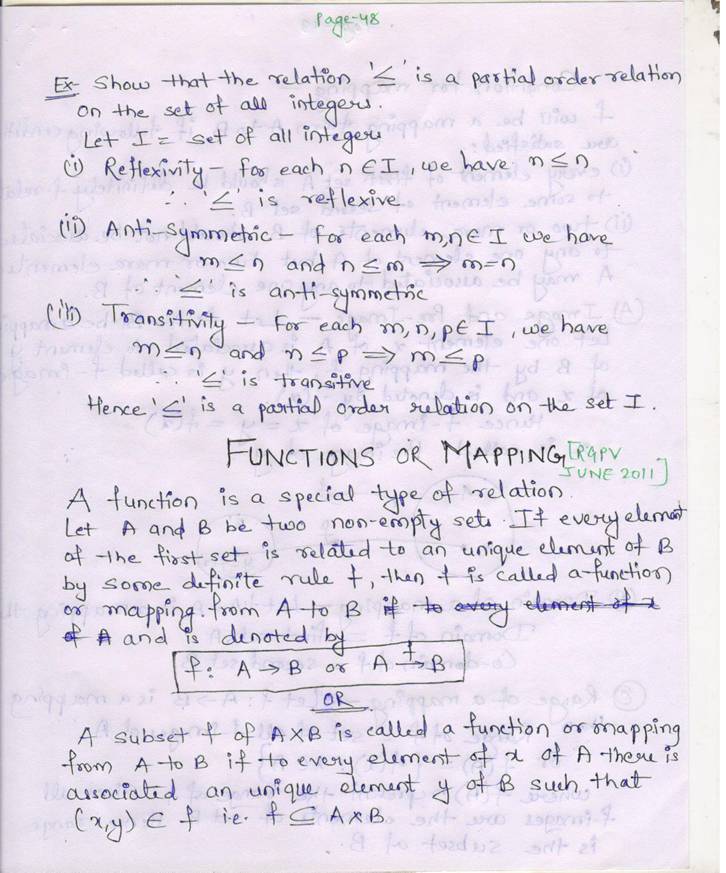 Page-48
Ex- Show that the relation '≤' is a partial order relation
on the set of all integers.
Let I = set of all integers
(i) Reflexivity - for each n ∈ I, we have n ≤ n
∴ '≤' is reflexive
(ii) Anti-symmetric - for each m,n ∈ I we have
m ≤ n and n ≤ m ⇒ m = n
∴ '≤' is anti-symmetric
(iii) Transitivity - For each m, n, p ∈ I, we have
m ≤ n and n ≤ p ⇒ m ≤ p
∴ '≤' is transitive
Hence '≤' is a partial order relation on the set I.
FUNCTIONS OR MAPPING [RGPV
JUNE 2011]
A function is a special type of relation.
Let A and B be two non-empty sets. If every element
of the first set is related to an unique element of B
by some definite rule f, then f is called a function
or mapping from A to B if to every element of x
of A and is denoted by
f: A → B or A f→ B
OR
A subset f of A×B is called a function or mapping
from A to B if to every element of x of A there is
associated an unique element y of B such that
(x,y) ∈ f i.e. f ⊆ A×B